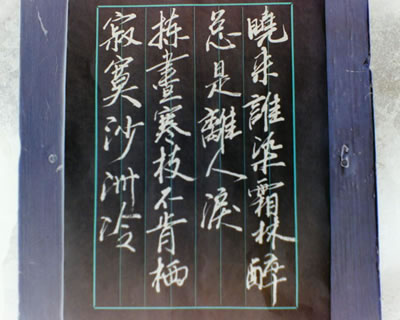 曉来誰染霜林醉
总是離人淚
拣盡寒枝不肯栖
寂寞沙洲冷